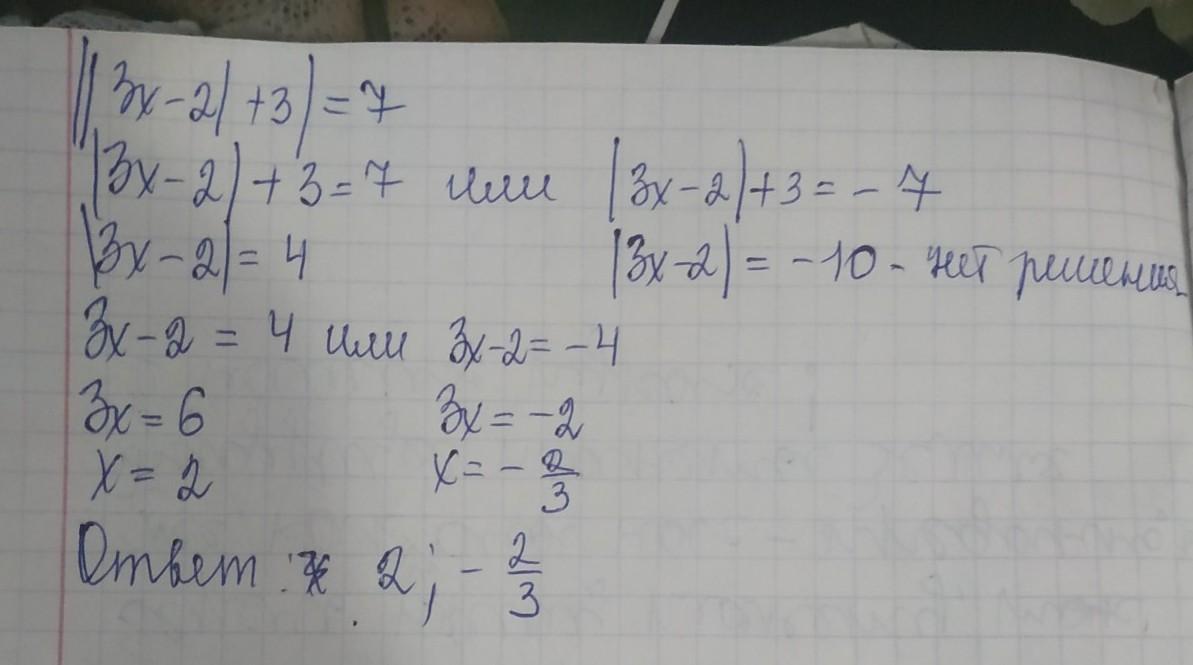 ||3x-2|+3|=7
|3x-2|+3=7 или |3x-2|+3=-7
|3x-2|=4 |3x-2|=-10 - нет решения
3x-2=4 или 3x-2=-4
3x=6 3x=-2
x=2 x=-2/3
Ответ: 2; -2/3